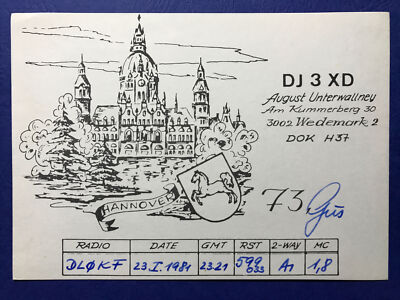 DJ 3 XD
August Unterwallney
Am Kummerberg 30
3002 Wedemark 2
DOK H37
HANNOVER
73 Gus
RADIO DATE GMT RST 2-WAY MC
DLØKF 23.I.1981 2321 599 033 A1 1,8